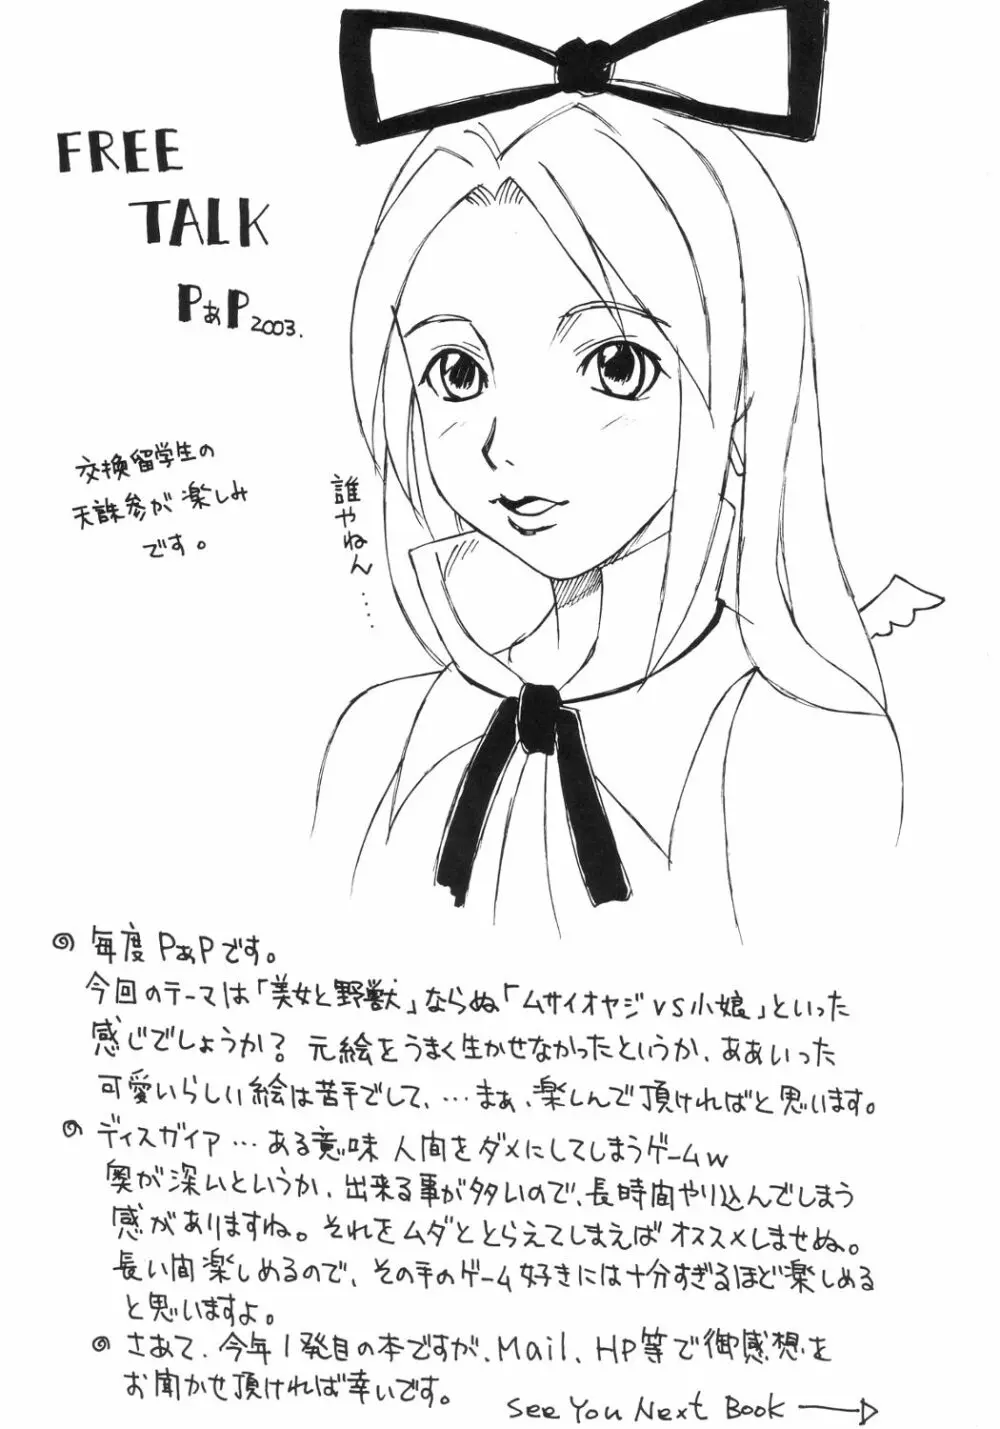 FREE
TALK
PぁP 2003.
交換留学生の
天誅参が楽しみ
です。
誰やねん……
◎ 毎度PぁPです。
今回のテーマは「美女と野獣」ならぬ「ムサイオヤジvs小娘」といった
感じでしょうか？ 元絵をうまく生かせなかったというか、ああいった
可愛いらしい絵は苦手でして、…まぁ、楽しんで頂ければと思います。
◎ ディスガイア…ある意味 人間をダメにしてしまうゲームw
奥が深いというか、出来る事が多いので、長時間やり込んでしまう
感がありますね。それをムダととらえてしまえばオススメしませぬ。
長い間楽しめるので、その手のゲーム好きには十分すぎるほど楽しめる
と思いますよ。
◎ さあて、今年1発目の本ですが、Mail、HP等で御感想を
お聞かせ頂ければ幸いです。
See You Next Book